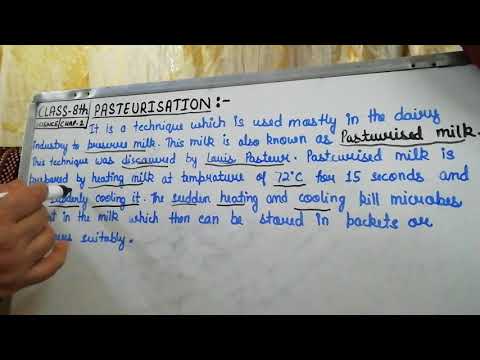 CLASS-8th PASTEURISATION:-
SCIENCE/CHAP.2 It is a technique which is used mostly in the dairy
industry to preserve milk. This milk is also known as Pasteurised milk.
This technique was discovered by Louis Pasteur. Pasteurised milk is
prepared by heating milk at temprature of 72°C for 15 seconds and
suddenly cooling it. The sudden heating and cooling kill microbes
in the milk which then can be stored in packets or
suitably.